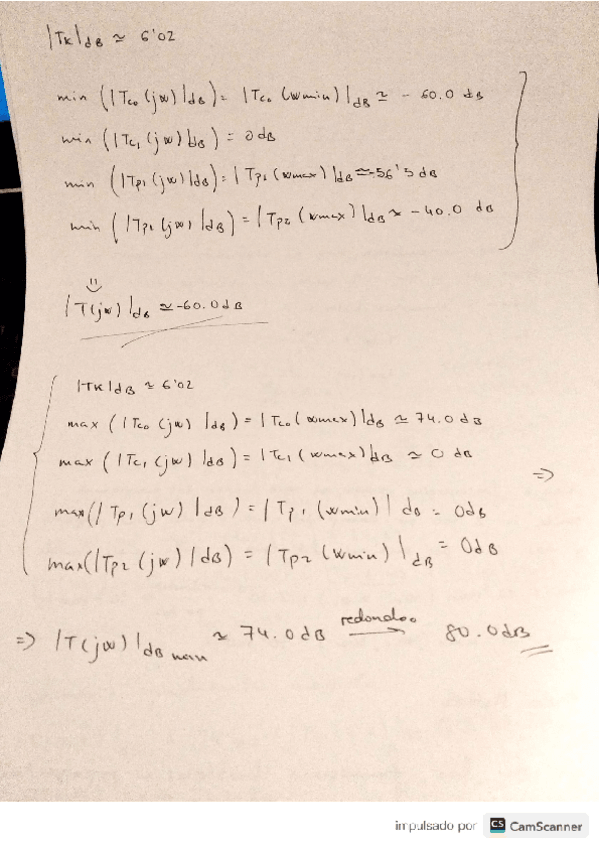 |Tk|dB ≃ 6'02
min (|Tco (jw)|dB) = |Tco (wmin)|dB ≃ - 60.0 dB
min (|Tc1 (jw)|dB) = 0 dB
min (|Tp1 (jw)|dB) = |Tp1 (wmax)|dB ≃ -56'5 dB
min (|Tp2 (jw)|dB) = |Tp2 (wmax)|dB ≃ - 40.0 dB
|T(jw)|dB ≃ -60.0 dB
|Tk|dB ≃ 6'02
max (|Tco (jw)|dB) = |Tco (wmax)|dB ≃ 74.0 dB
max (|Tc1 (jw)|dB) = |Tc1 (wmax)|dB ≃ 0 dB
=>
max(|Tp1 (jw)|dB) = |Tp1 (wmin)|dB = 0dB
max(|Tp2 (jw)|dB) = |Tp2 (wmin)|dB = 0dB
=> |T(jw)|dB max ≃ 74.0 dB redondeo → 80.0 dB
impulsado por CS CamScanner